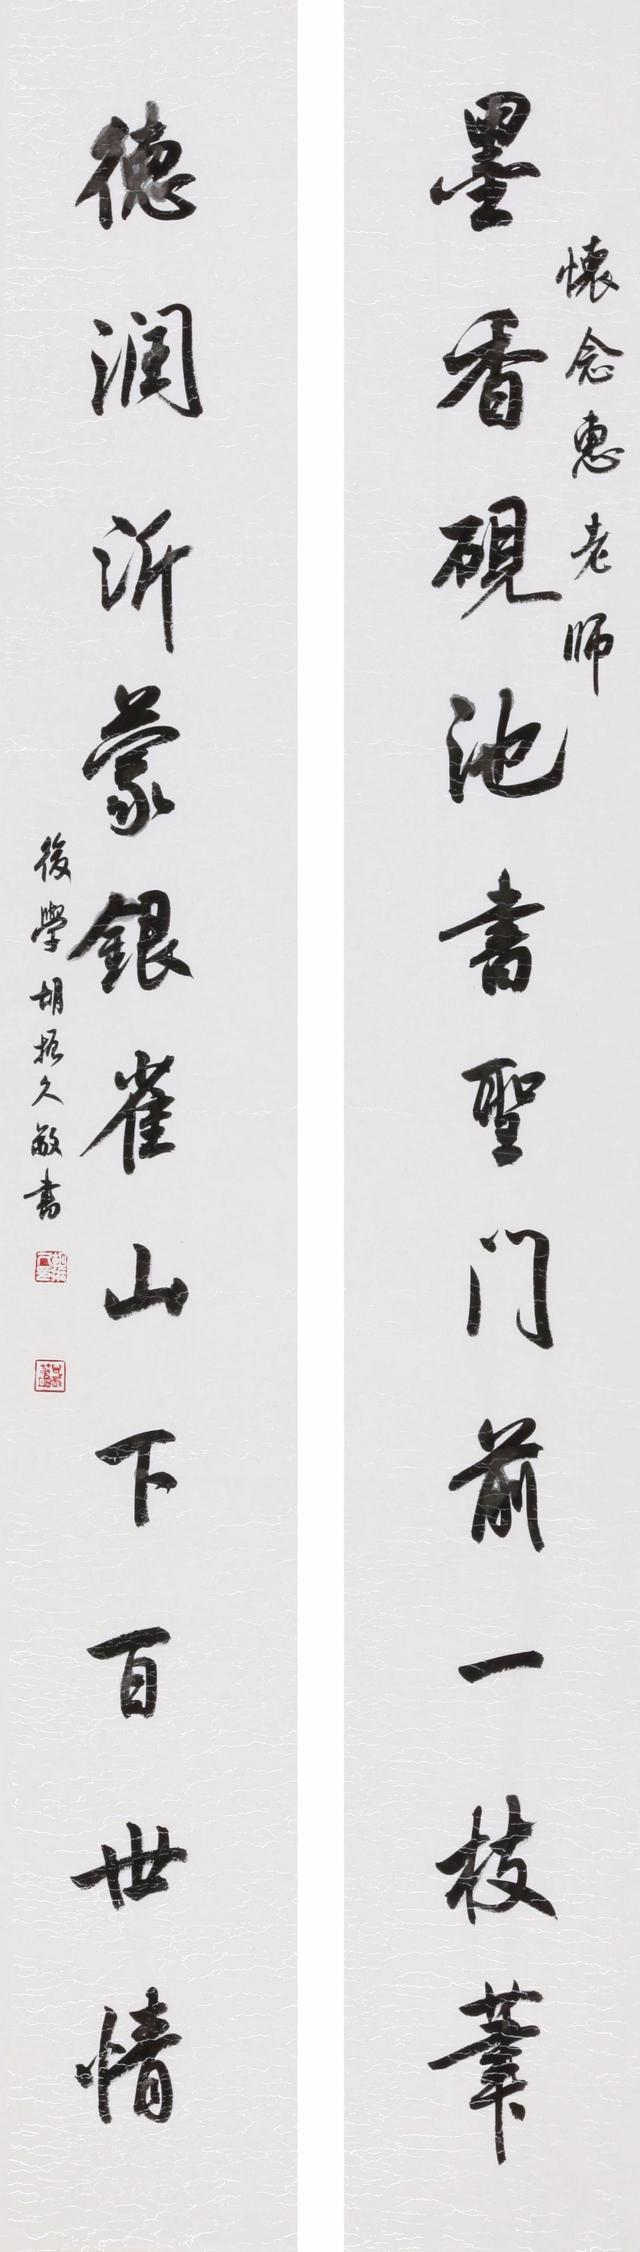 懷念惠老师
墨香硯池書聖门前一枝筆
德润沂蒙銀雀山下百世情
後學胡振久敬書